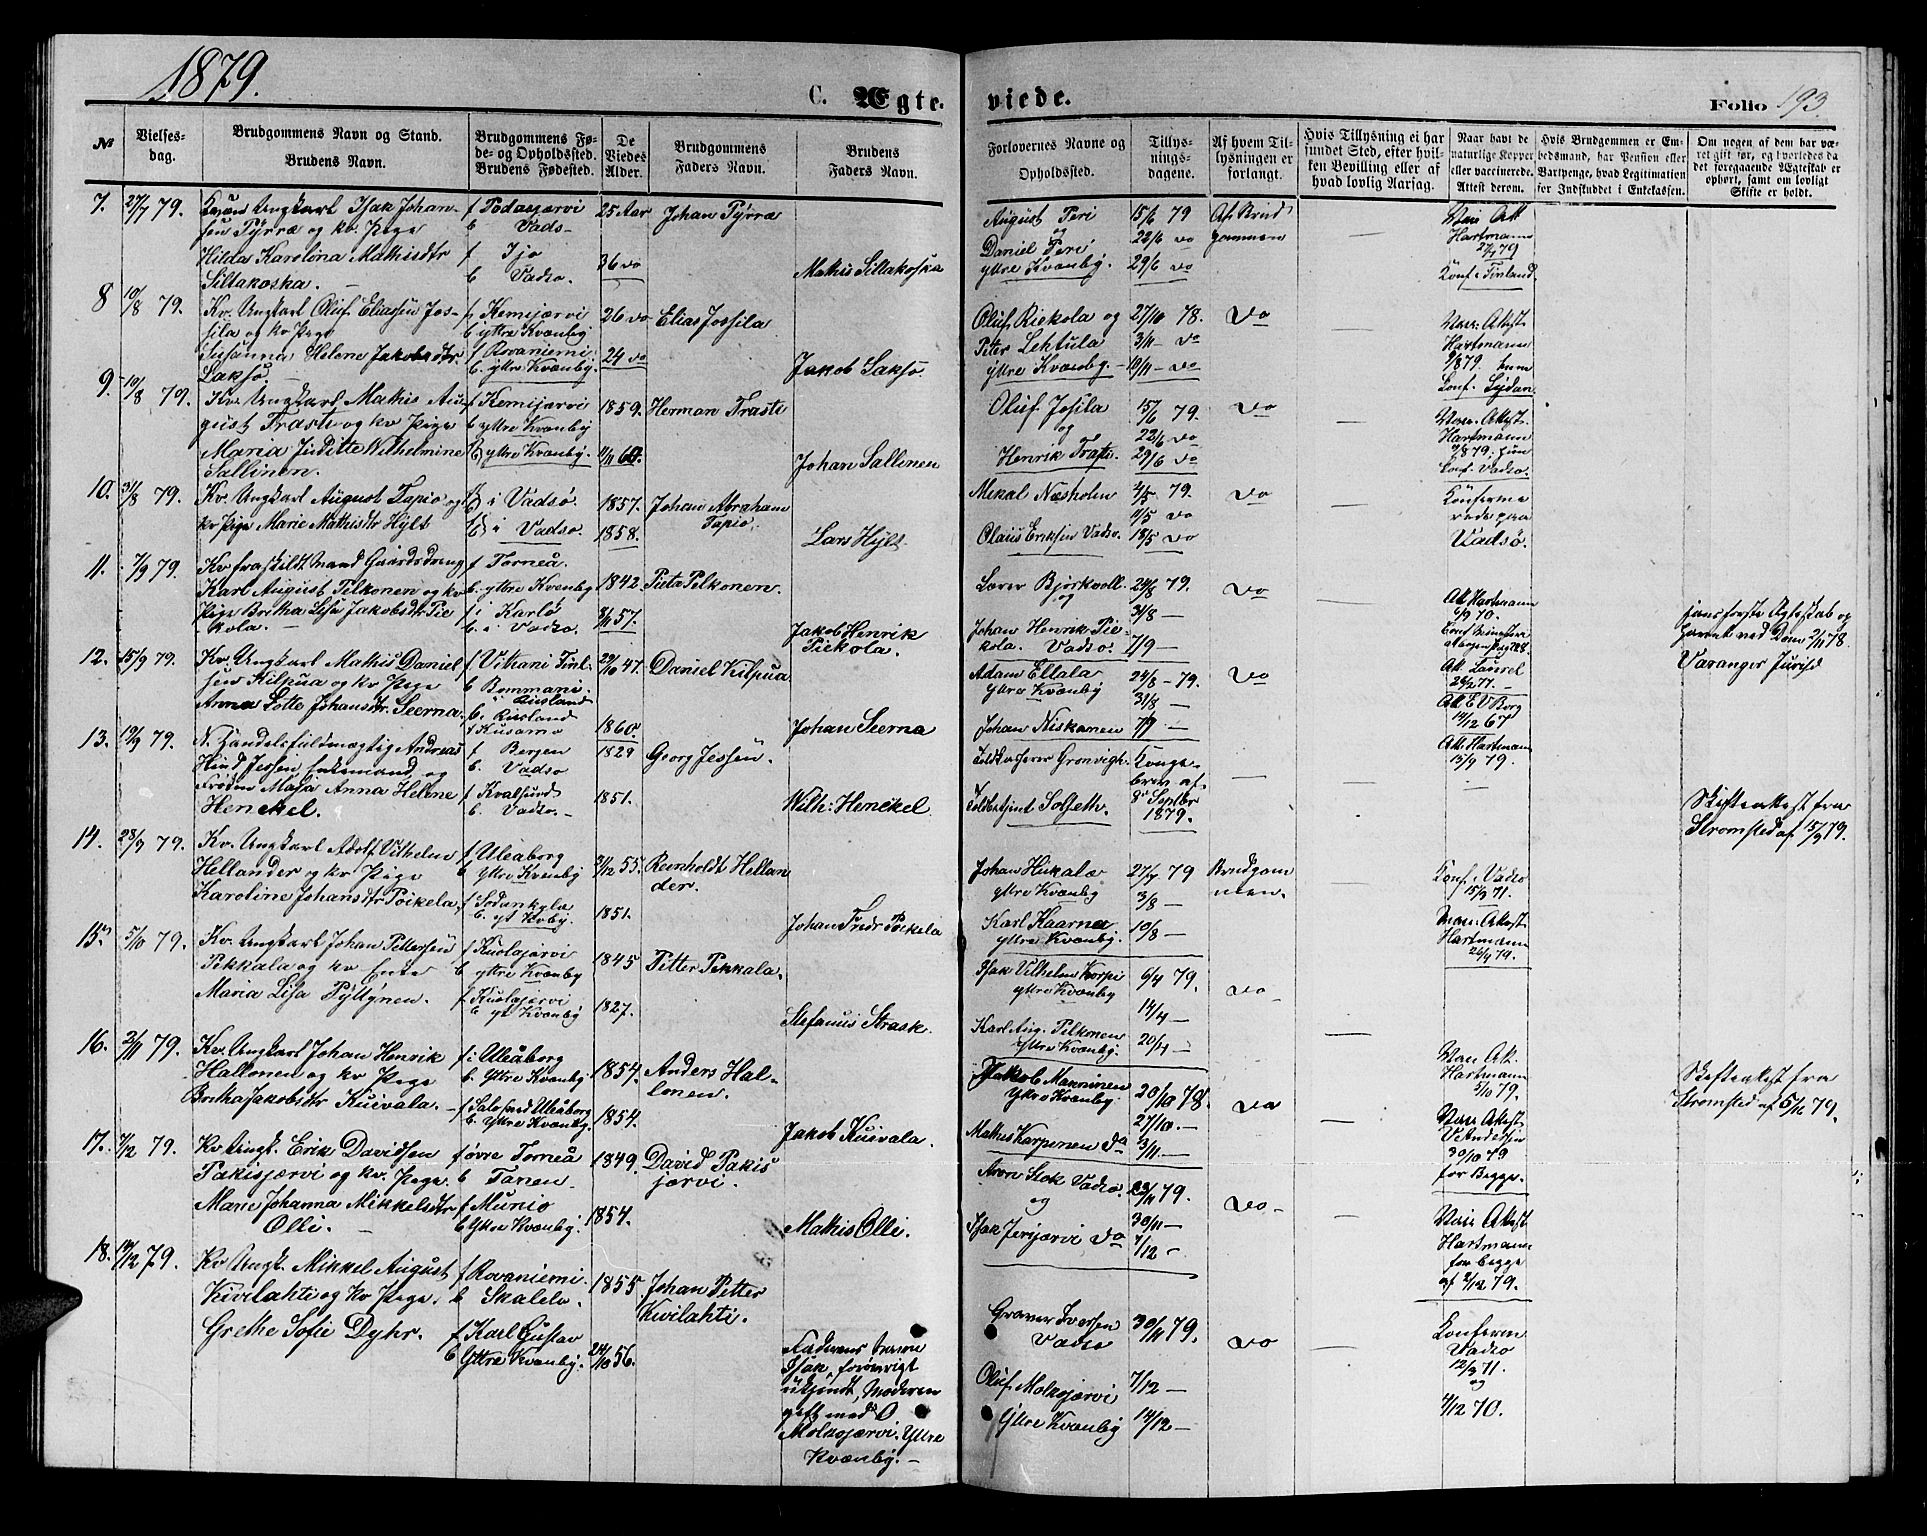 1879.
C. Ægte-
viede.
Folio 193.
№
Vielses-
dag.
Brudgommens Navn og Stand.
Brudens Navn.
Brudgommens Fø-
de- og Opholdssted.
Brudens Fødested.
De
Viedes
Alder.
Brudgommens
Faders Navn.
Brudens
Faders Navn.
Forlovernes Navne og
Opholdssted.
Tillys-
nings-
dagene.
Af hvem Til-
lysningen er
forlangt.
Hvis Tillysning ei har
fundet Sted, efter hvil-
ken Bevilling eller af
hvad lovlig Aarsag.
Naar havt de
naturlige Kopper
eller vaccinerede.
Attest derom.
Hvis Brudgommen er Em-
bedsmand, har Pension eller
Vartpenge, hvad Legitimation
for Indskuddet i Enkekassen.
Om nogen af dem har væ-
ret gift før, og hvorledes da
det foregaaende Ægteskab er
ophørt, samt om lovligt
Skifte er holdt.
7. 27/7 79.
Ungkarl Isak Johan-
sen Pyrræ og kv. Pige
Hilda Karolina Mathisdtr
Siltakoska. —
f Podasjærvi
b Vads-
f Ijo
b Vadsø.
25 Aar
36 do
Johan Pyrræ
Mathis Siltakoska
August Peri
og
Daniel Peri
yttre Kvænby.
15/6 79
22/6 do
29/6 do
Af Brud
gommen
—
Nat. Att
Hartmann
27/7 79
Konf. i Finland.
8 10/8 79.
Kv. Ungkarl Oluf Eliassen Jos-
sila og kv Pige
Susanna Helene Jakobsdtr
Laksø.
f Kemijærvi
b yttre Kvænby
f Rovaniemi
b. yttre Kvænby.
26 do
24 do
Elias Jossila
Jakob Laksø
Oluf Riekola og
Peter Lehtula
yttre Kvænby.
27/10 78.
3/11 — do
10/11 — do
do
—
Hartmann
9/8 79.
9. 10/8 79.
Kv. Ungkarl Mathis Au-
gust Trasti og kv Pige
Maria Juditte Wilhelmine
Sallinen.
f Kemijærvi
b yttre Kvænby
yttre Kvænby.
1859.
Herman Trasti
Johan Sallinen
Oluf Josila
og
Henrik Trasti.
15/6 79.
22/6 do
29/6 do
do
—
Hartmann
9/8 79.
Conf. Vadsø.
10. 31/8 79.
Kv. Ungkarl August Tapio og
kv Pige Marie Mathisdtr Hylt
i Vadsø.
i Vadsø.
1857.
1858.
Johan Abraham
Tapio.
Lars Hylt.
Mekal Næsholm
Olaus Eriksen Vadsø.
4/5 79.
11/5 do
18/5 do
do
—
Konferme
rede paa
Vadsø.
11. 7/9 79.
Kv fraskildt Mand Gaardsdreng
Karl August Pelkonen og kv
Pige Bretha Lisa Jakobsdtr Pie
kola. —
f Torneå.
b. yttre Kvænby
f i Karlø
b. i Vadsø.
1842.
8/11 57.
Pieta Pelkonen.
Jakob Henrik
Piekola.
Lærer Bjørkvoll
og
Johan Henrik Pie-
kola. Vadsø.
24/8 79.
31/8 —
7/9 —
do
—
Att Hartmann
6/9 70.
hans første Ægteskab op
hævet ved Dom 2/11 78.
Varanger Jurisd
12. 15/9 79.
Kv. Ungkarl Mathis Daniel
sen Kilpua og kv Pige
Anna Lotte Johansdtr Seerna.
f Vihani Finl-
b Bommani
i Rusland
b. Rusland
f Kusamo
29/10 47.
1860.
Daniel Kilpua
Johan Seerna
Adam Ellala
yttre Kvænby
Johan Niskanen
24/8 — 79.
31/8 —
7/9 —
do
—
Att. Laurel
26/2 77. —
Att E V Borg
14/12 67
13. 19/9 79.
N. Handelsfuldmægtig Andreas
Hind Jessen Enkemand, og
Frøken Masa Anna Helene
Henckel.
f Bergen
b. Vadsø
f Kvalsund
b. Vadsø. —
1829
1851.
Georg Jessen.
Wilh: Henckel
Toldkasserer Gronvigh.
Toldbetjent Solseth.
Konge-
brev af
8de Septbr
1879.
—
—
Att. Hartmann
13/9 79.
—
Skifteattest fra
Stromsted af 15/9 79.
14. 28/9 79.
Kv. Ungkarl Adolf Vilhelm
Hellander og kv Pige
Karoline Johansdtr Poikela,
f Uleåborg
b yttre Kvænby
f Sodankyla
b. yt Kvby.
31/12 55.
1851.
Reinholdt Hellan
der.
Johan Fredr Poikela
Johan Hukala
yttre Kvænby
Karl Kaarna
yttre Kvænby.
27/7 79
3/8 —
10/8 —
Brudgom
men.
—
Konf. i Vadsø
15/9 71.
Nat. Attest.
Hartmann
26/9 79.
15. 5/10 79.
Kv. Ungkarl Johan Pettersen
Pekkala og kv Enke
Maria Lisa Pyttynen.
f Kuolajærvi
b yttre Kvænby
f Kuolajærvi
b yt Kvænby
1845
1827.
Petter Pekkala.
Stefanus Strask.
Isak Vilhelm Korpi
yttre Kvænby
Karl Aug. Pelkonen
yttre Kvænby.
6/4 79.
14/4 —
20/4 —
do —
—
Att.
Hartmann
5/10 79.
Skifteattest fra
Stromsted af 5/10 79.
16. 2/11 79.
Kv. Ungkarl Johan Henrik
Hallonen og kv Pige
Bretha Jakobsdtr Kuivala. —
f. Uleåborg
b. Yttre Kvænby
f Salo ved Uleåborg
b. Yttre Kvænby.
1854.
1854.
Anders Hal-
lonen.
Jakob Kuivala.
Jakob Manninen
Yttre Kvænby.
Mathis Karpenen do
20/10 78.
27/10. —
3/11 —
do
—
Nat. Attest.
V Andersen
30/10 79
for Begge.
17. 7/12 79.
Kv Ungk. Erik Davidsen
Pakisjærvi og kv. Pige
Marie Johanna Mikkelsdtr
Olli. —
f øvre Torneå
b Tanen
f Munio
b Yttre Kvænby.
1849.
1854.
David Pakis
jærvi.
Mathis Olli.
Aron Stok Vadsø.
og
Isak Jerijærvi do
23/11 79.
30/11 —
7/12 —
do —
—
Nat. Attest
Hartmann
for begge
af 2/12 79.
18. 14/12 79.
Kv Ungk. Mikkel August
Kivilahti og kv Pige,
Grethe Sofie Dyhr.
f Rovaniemi
b Skalelv.
f Karl Gustav
b Yttre Kvænby.
1855
24/10 56.
Johan Petter
Kivilahti.
Faderens Navn
Isak, forøvrigt
ukjendt, Moderen
gift med O
Molkojærvi, Yttre
Kvænby. —
Graver Iversen
Vadsø
Oluf Molkojærvi
Yttre Kvænby
30/11 79.
7/12 —
14/12 —
do
—
Konferm
Vadsø
12/3 71.
og
4/12 70.